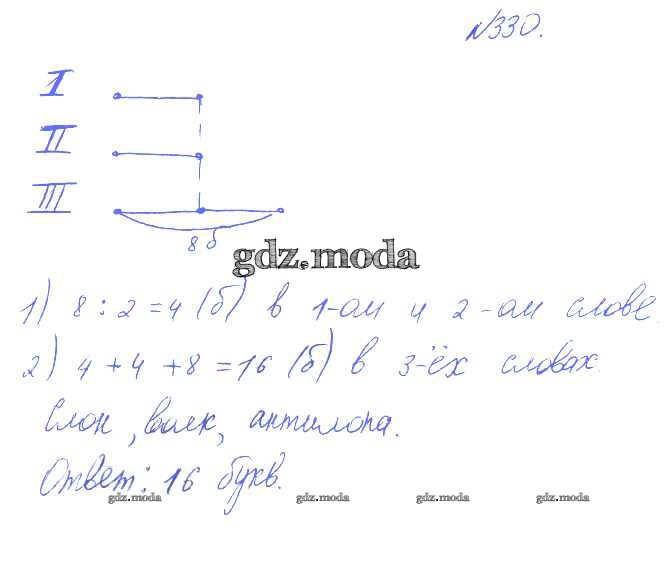 №330.
I
II
III
8 б
gdz.moda
1) 8 : 2 = 4 (б) в 1-ом и 2-ом слове.
2) 4 + 4 + 8 = 16 (б) в 3-ёх словах.
Слон, волк, антилопа.
Ответ: 16 букв.
gdz.moda gdz.moda gdz.moda gdz.moda